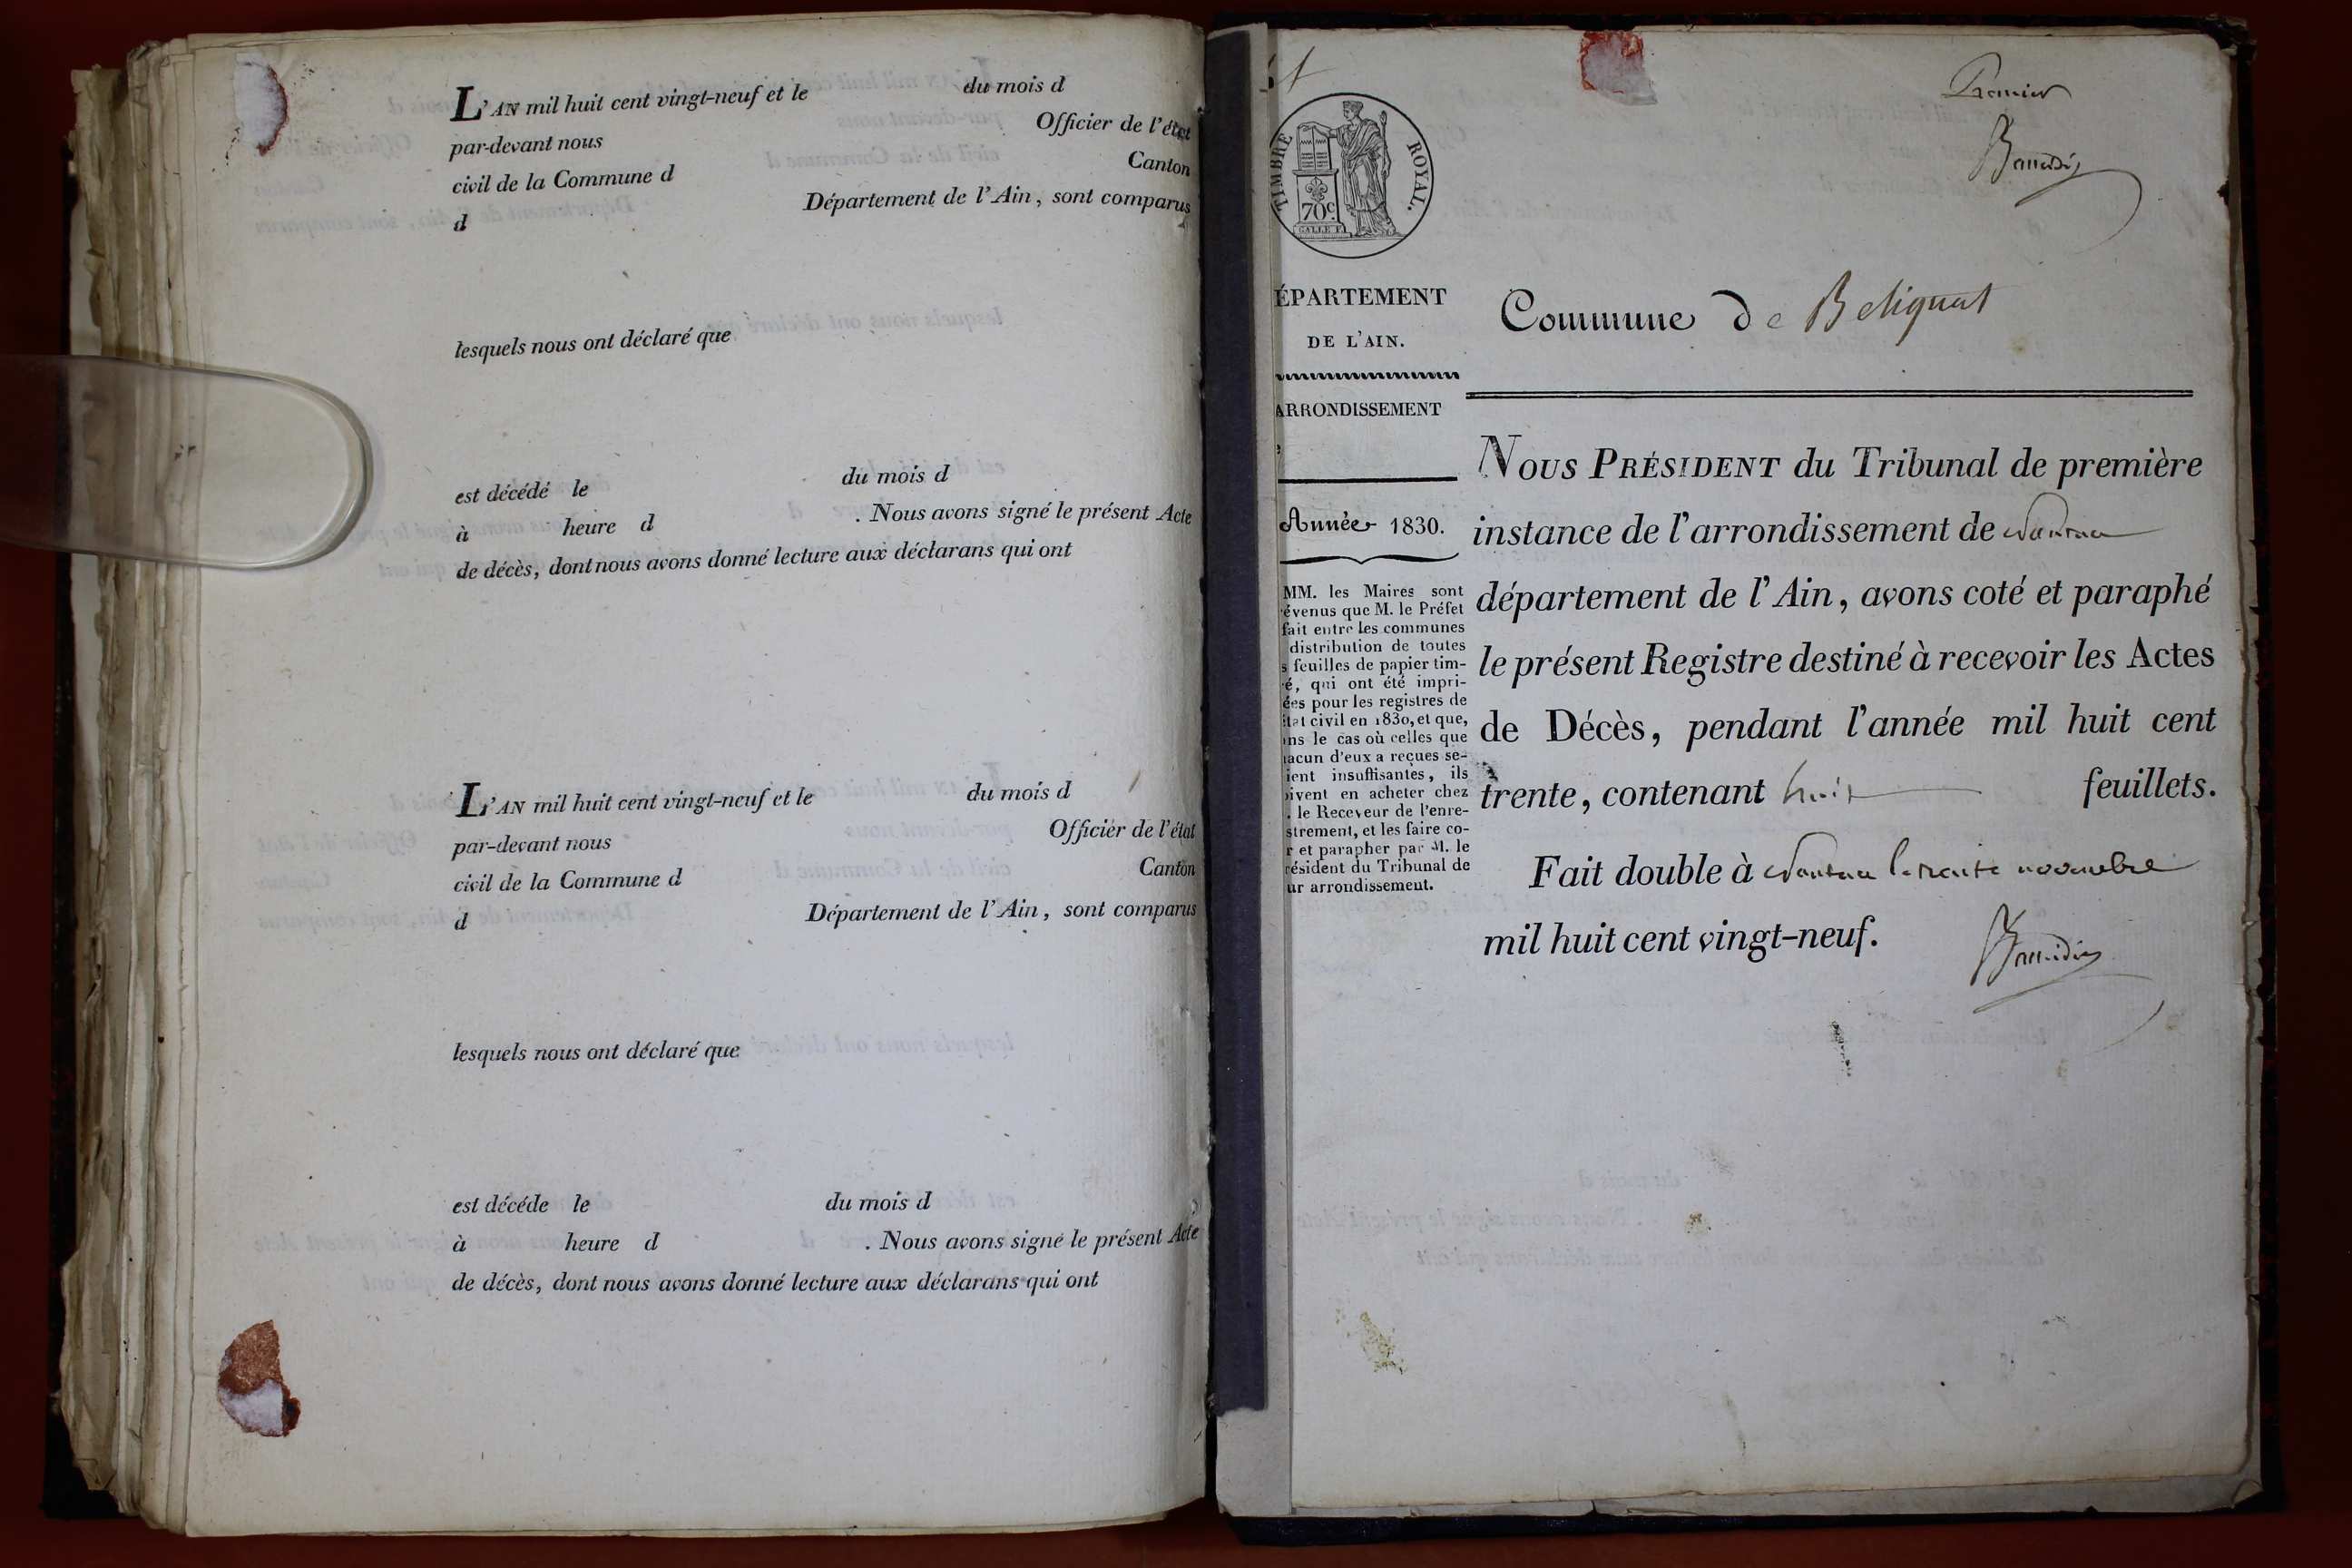 L'AN mil huit cent vingt-neuf et le du mois d
par-devant nous Officier de l'état
civil de la Commune d Canton
d Département de l'Ain, sont comparus
lesquels nous ont déclaré que
est décédé le du mois d
à heure d . Nous avons signé le présent Acte
de décès, dont nous avons donné lecture aux déclarans qui ont
L'AN mil huit cent vingt-neuf et le du mois d
par-devant nous Officier de l'état
civil de la Commune d Canton
d Département de l'Ain, sont comparus
lesquels nous ont déclaré que
est décéde le du mois d
à heure d . Nous avons signé le présent Acte
de décès, dont nous avons donné lecture aux déclarans qui ont
Premier
TIMBRE ROYAL.
70c
GALLE F.
ÉPARTEMENT
DE L'AIN.
ARRONDISSEMENT
Année 1830.
MM. les Maires sont
évenus que M. le Préfet
fait entre les communes
distribution de toutes
s feuilles de papier tim-
é, qui ont été impri-
ées pour les registres de
état civil en 1830, et que,
ns le cas où celles que
acun d'eux a reçues se-
ient insuffisantes, ils
oivent en acheter chez
. le Receveur de l'enre-
strement, et les faire co-
r et parapher par M. le
résident du Tribunal de
ur arrondissement.
Commune de Beliguat
NOUS PRÉSIDENT du Tribunal de première
instance de l'arrondissement de Nantua
département de l'Ain, avons coté et paraphé
le présent Registre destiné à recevoir les Actes
de Décès, pendant l'année mil huit cent
trente, contenant huit feuillets.
Fait double à Nantua le trente novembre
mil huit cent vingt-neuf.